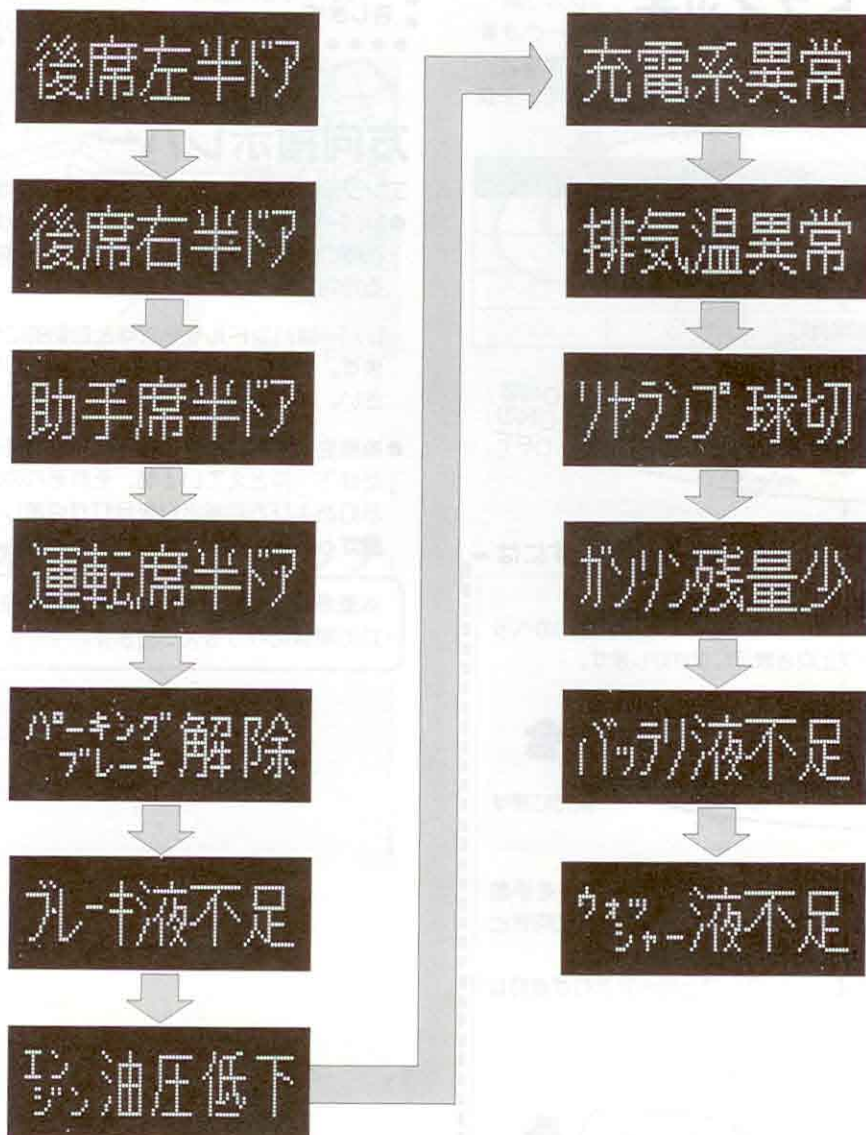 後席左半ドア
後席右半ドア
助手席半ドア
運転席半ドア
パーキング
ブレーキ解除
ブレーキ液不足
エン
ジン油圧低下
充電系異常
排気温異常
リヤランプ球切
ガソリン残量少
バッテリ液不足
ウォッ
シャー液不足